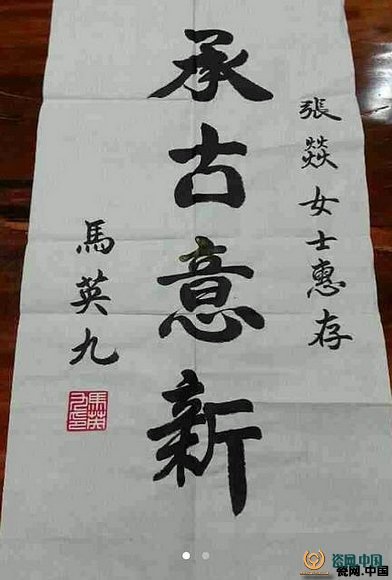 張燚女士惠存
承古意新
馬英九
瓷网.中国
瓷网.中国